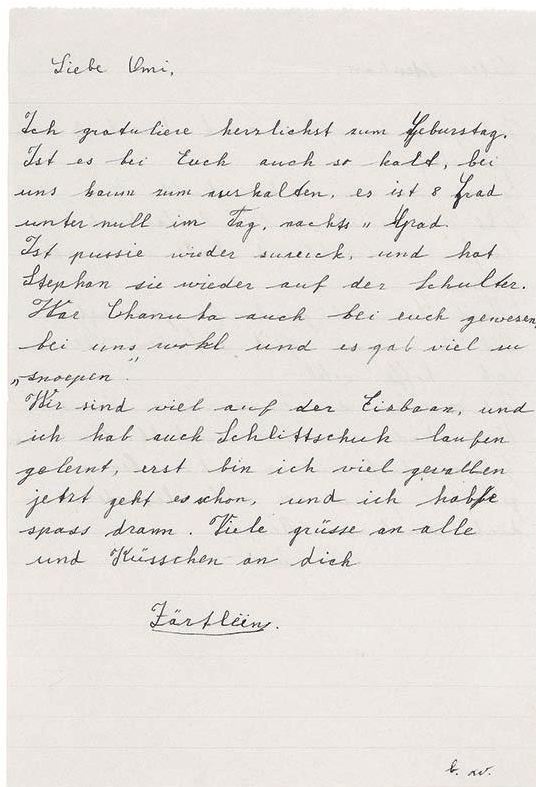 Liebe Omi,
Ich gratuliere herrlichst zum Geburstag.
Ist es bei Euch auch so kalt, bei
uns kaum zum aushalten, es ist 8 Grad
unter null im Tag, nachts 11 Grad.
Ist pussie wieder zurück, und hat
Stephan sie wieder auf der Schulter.
War Chanuka auch bei euch gewesen,
bei uns wohl und es gab viel zu
„snoepen".
Wir sind viel auf der Eisbaan, und
ich hab auch Schlittschuh laufen
gelernt, erst bin ich viel gevallen
jetzt geht es schon, und ich habe
spass drann. Viele grüsse an alle
und Küsschen an dich
b. w.